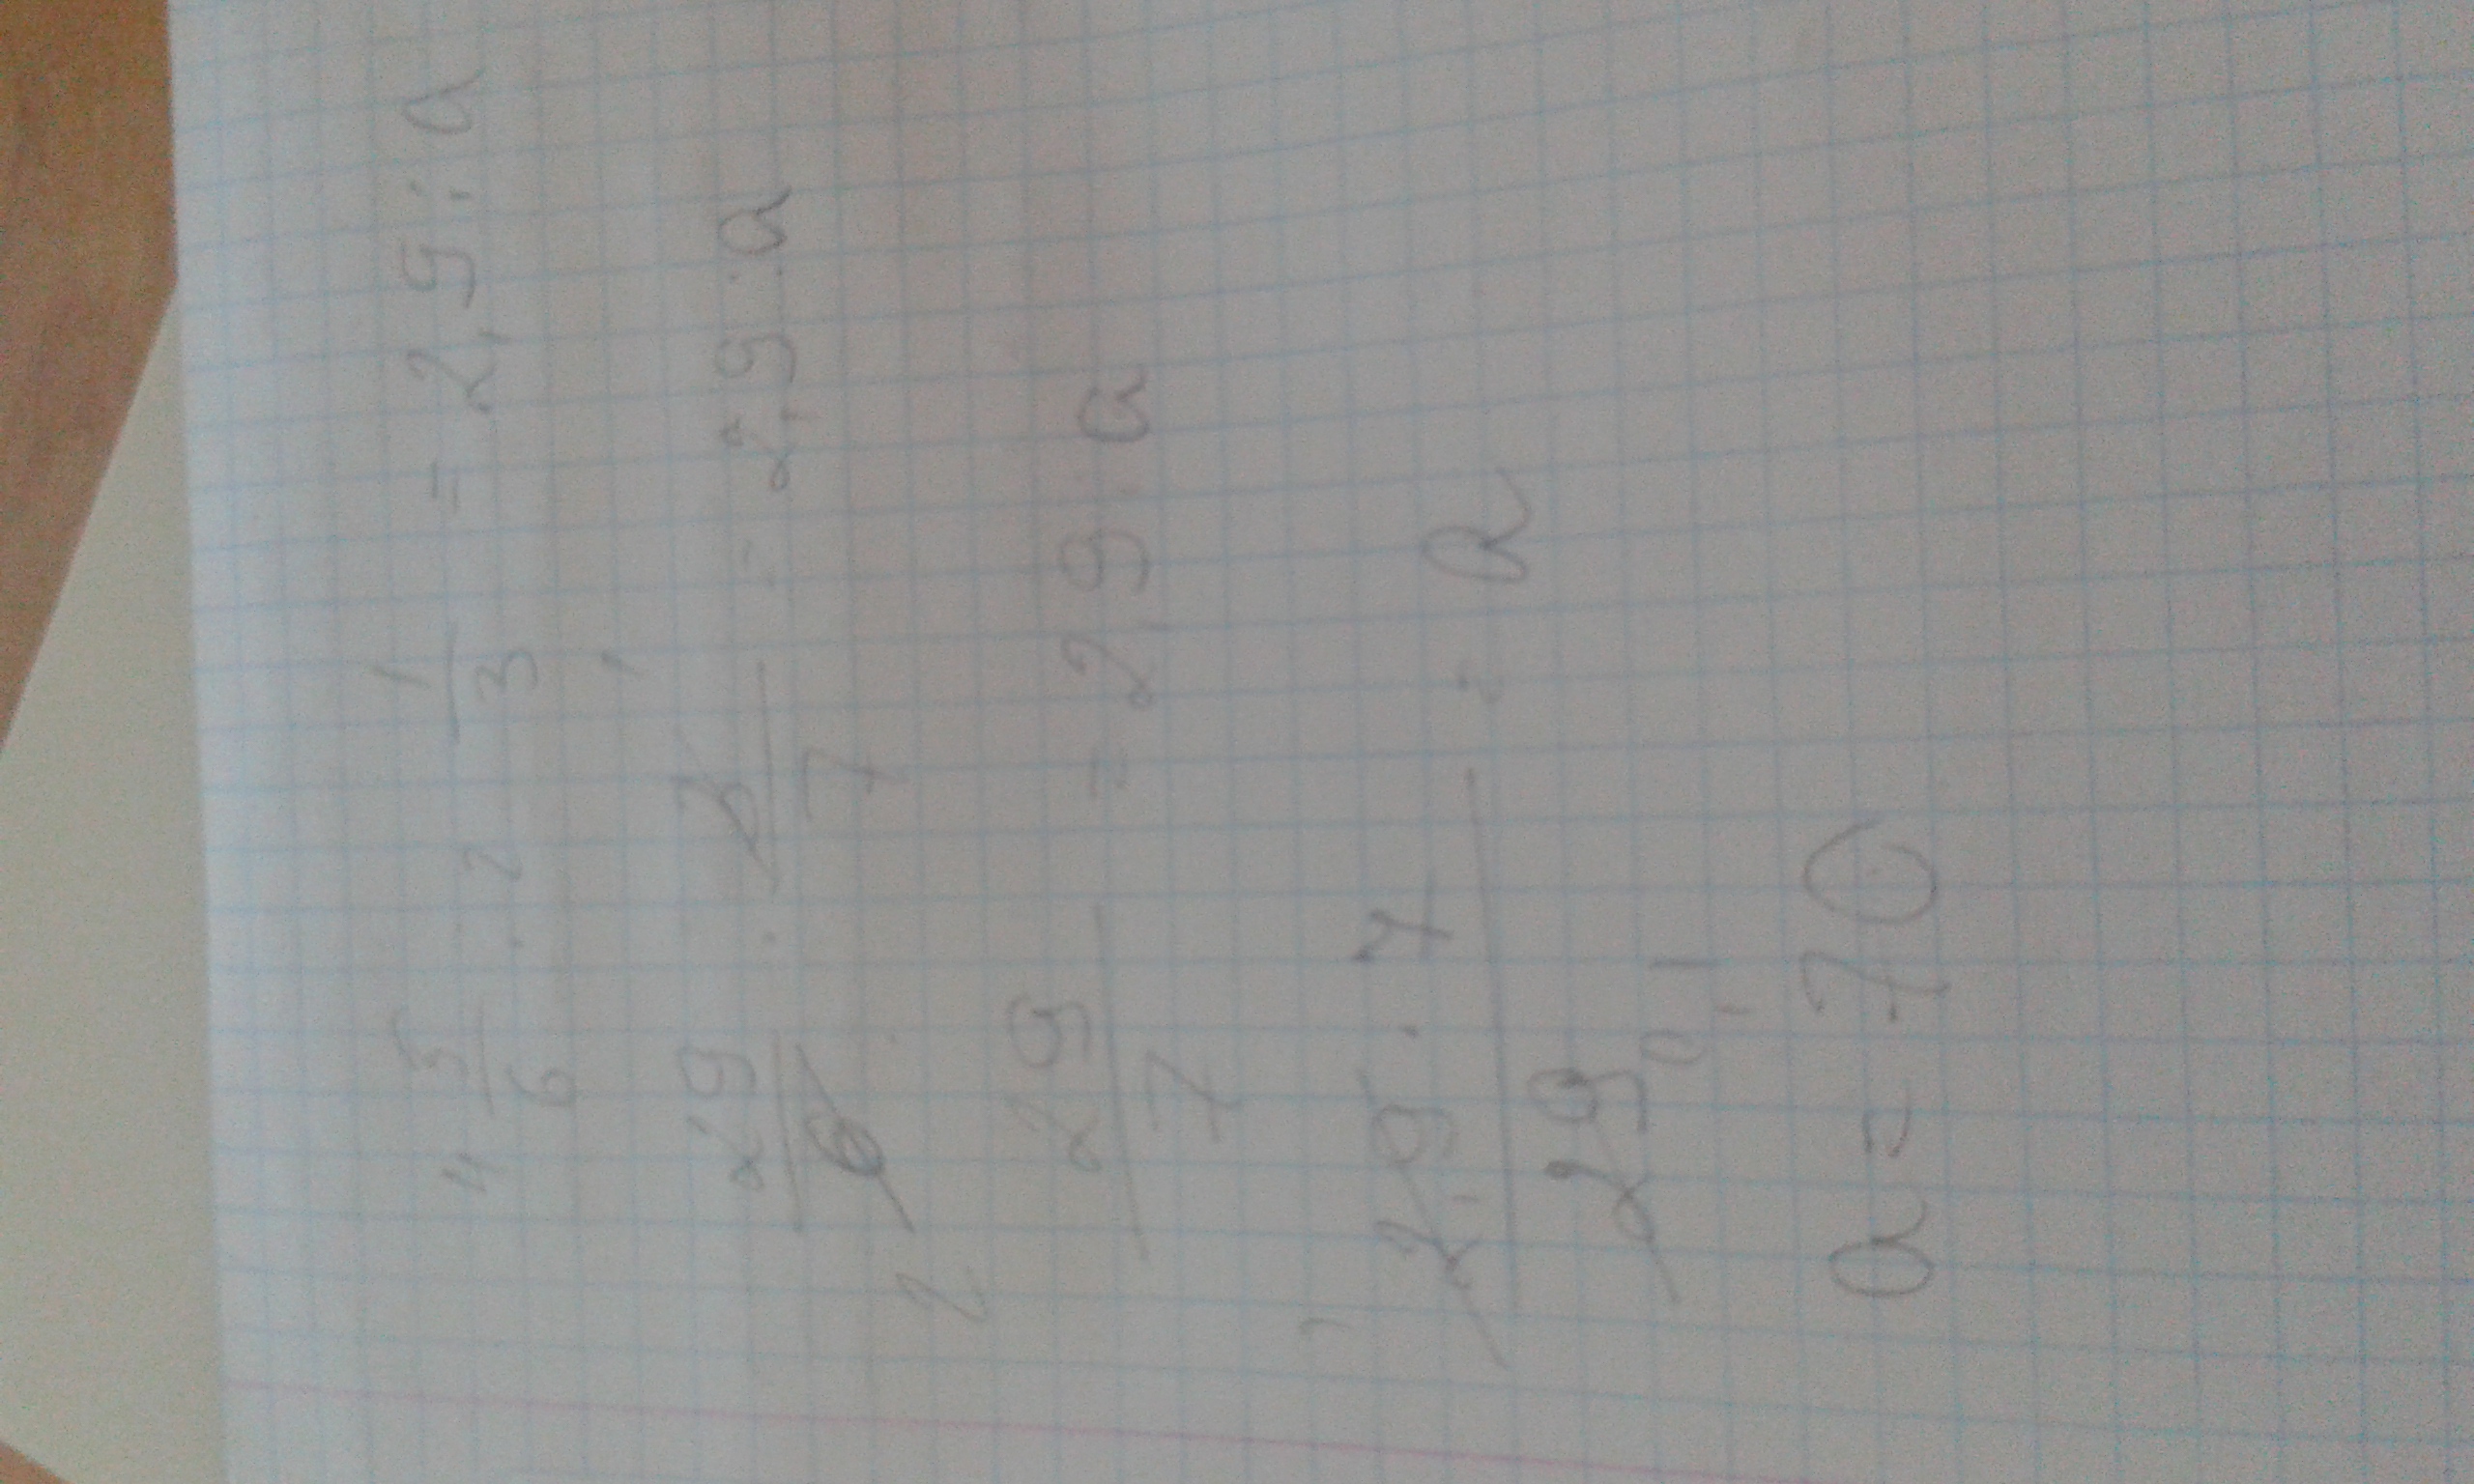 4 5/6 : 2 1/3 = 2,9 : a
29/6 2 · 3 1/7 = 2,9 : a
29/7 = 2,9 : a
1 2,9 · 7 / 29 0,1 = a
a = 70